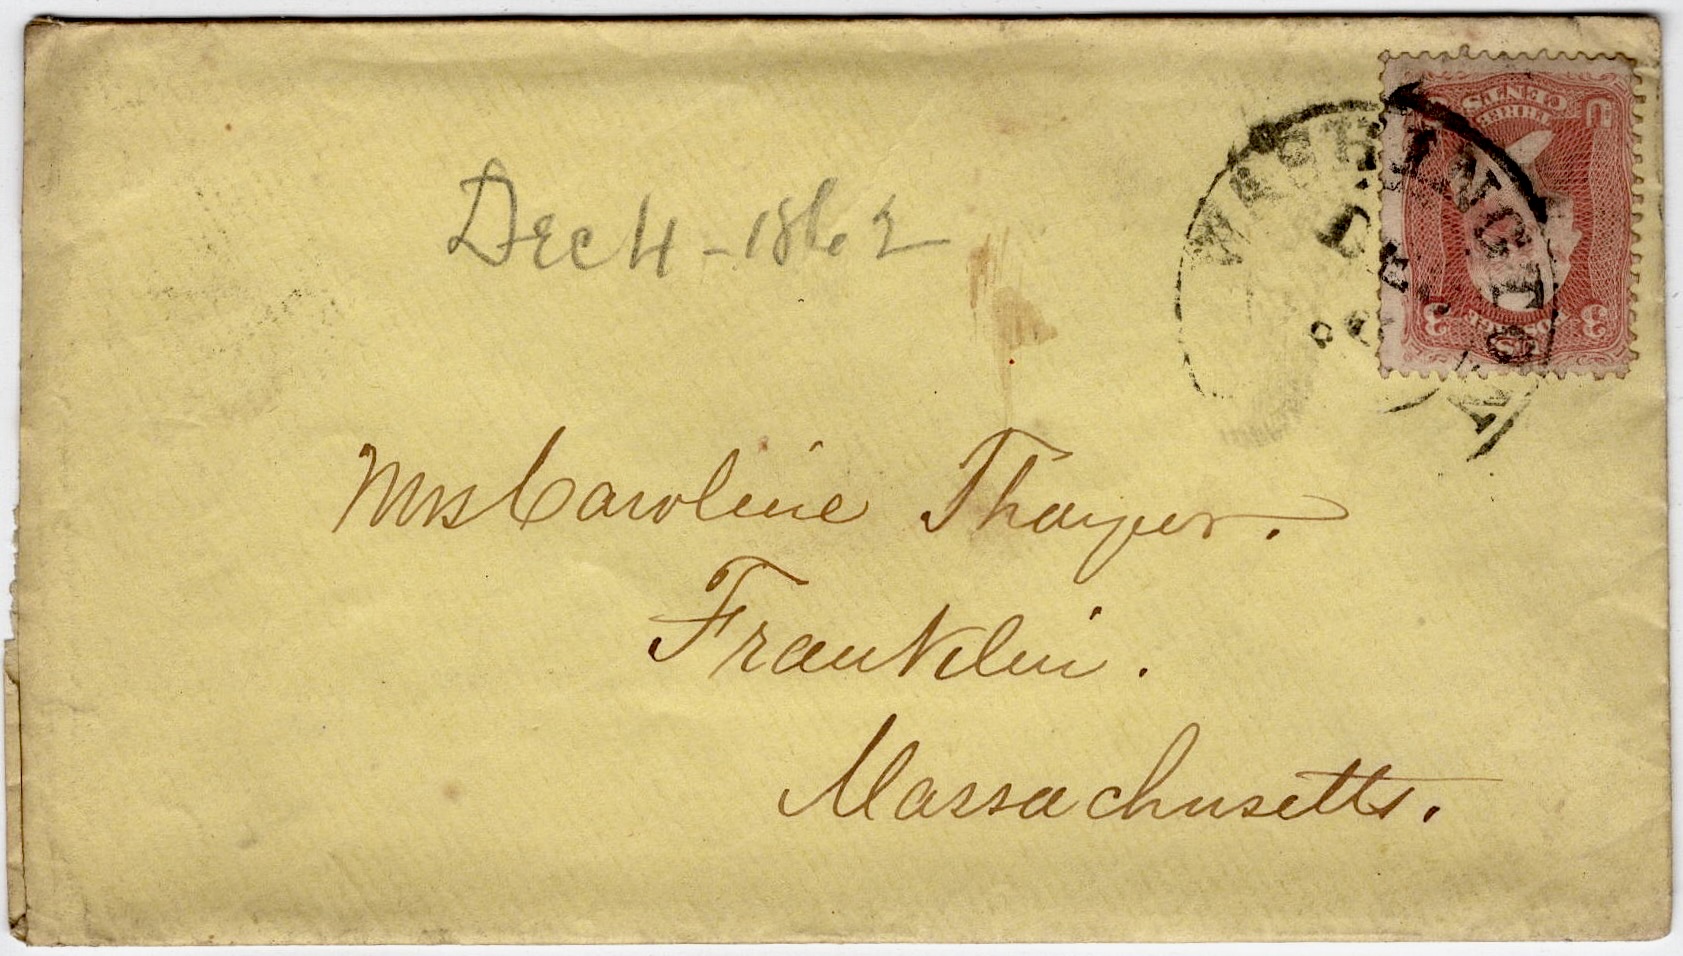 Dec 4 - 1862
WASHINGTON
DEC
THREE CENTS
U
3 3
Mrs Caroline Thayer.
Franklin.
Massachusetts.